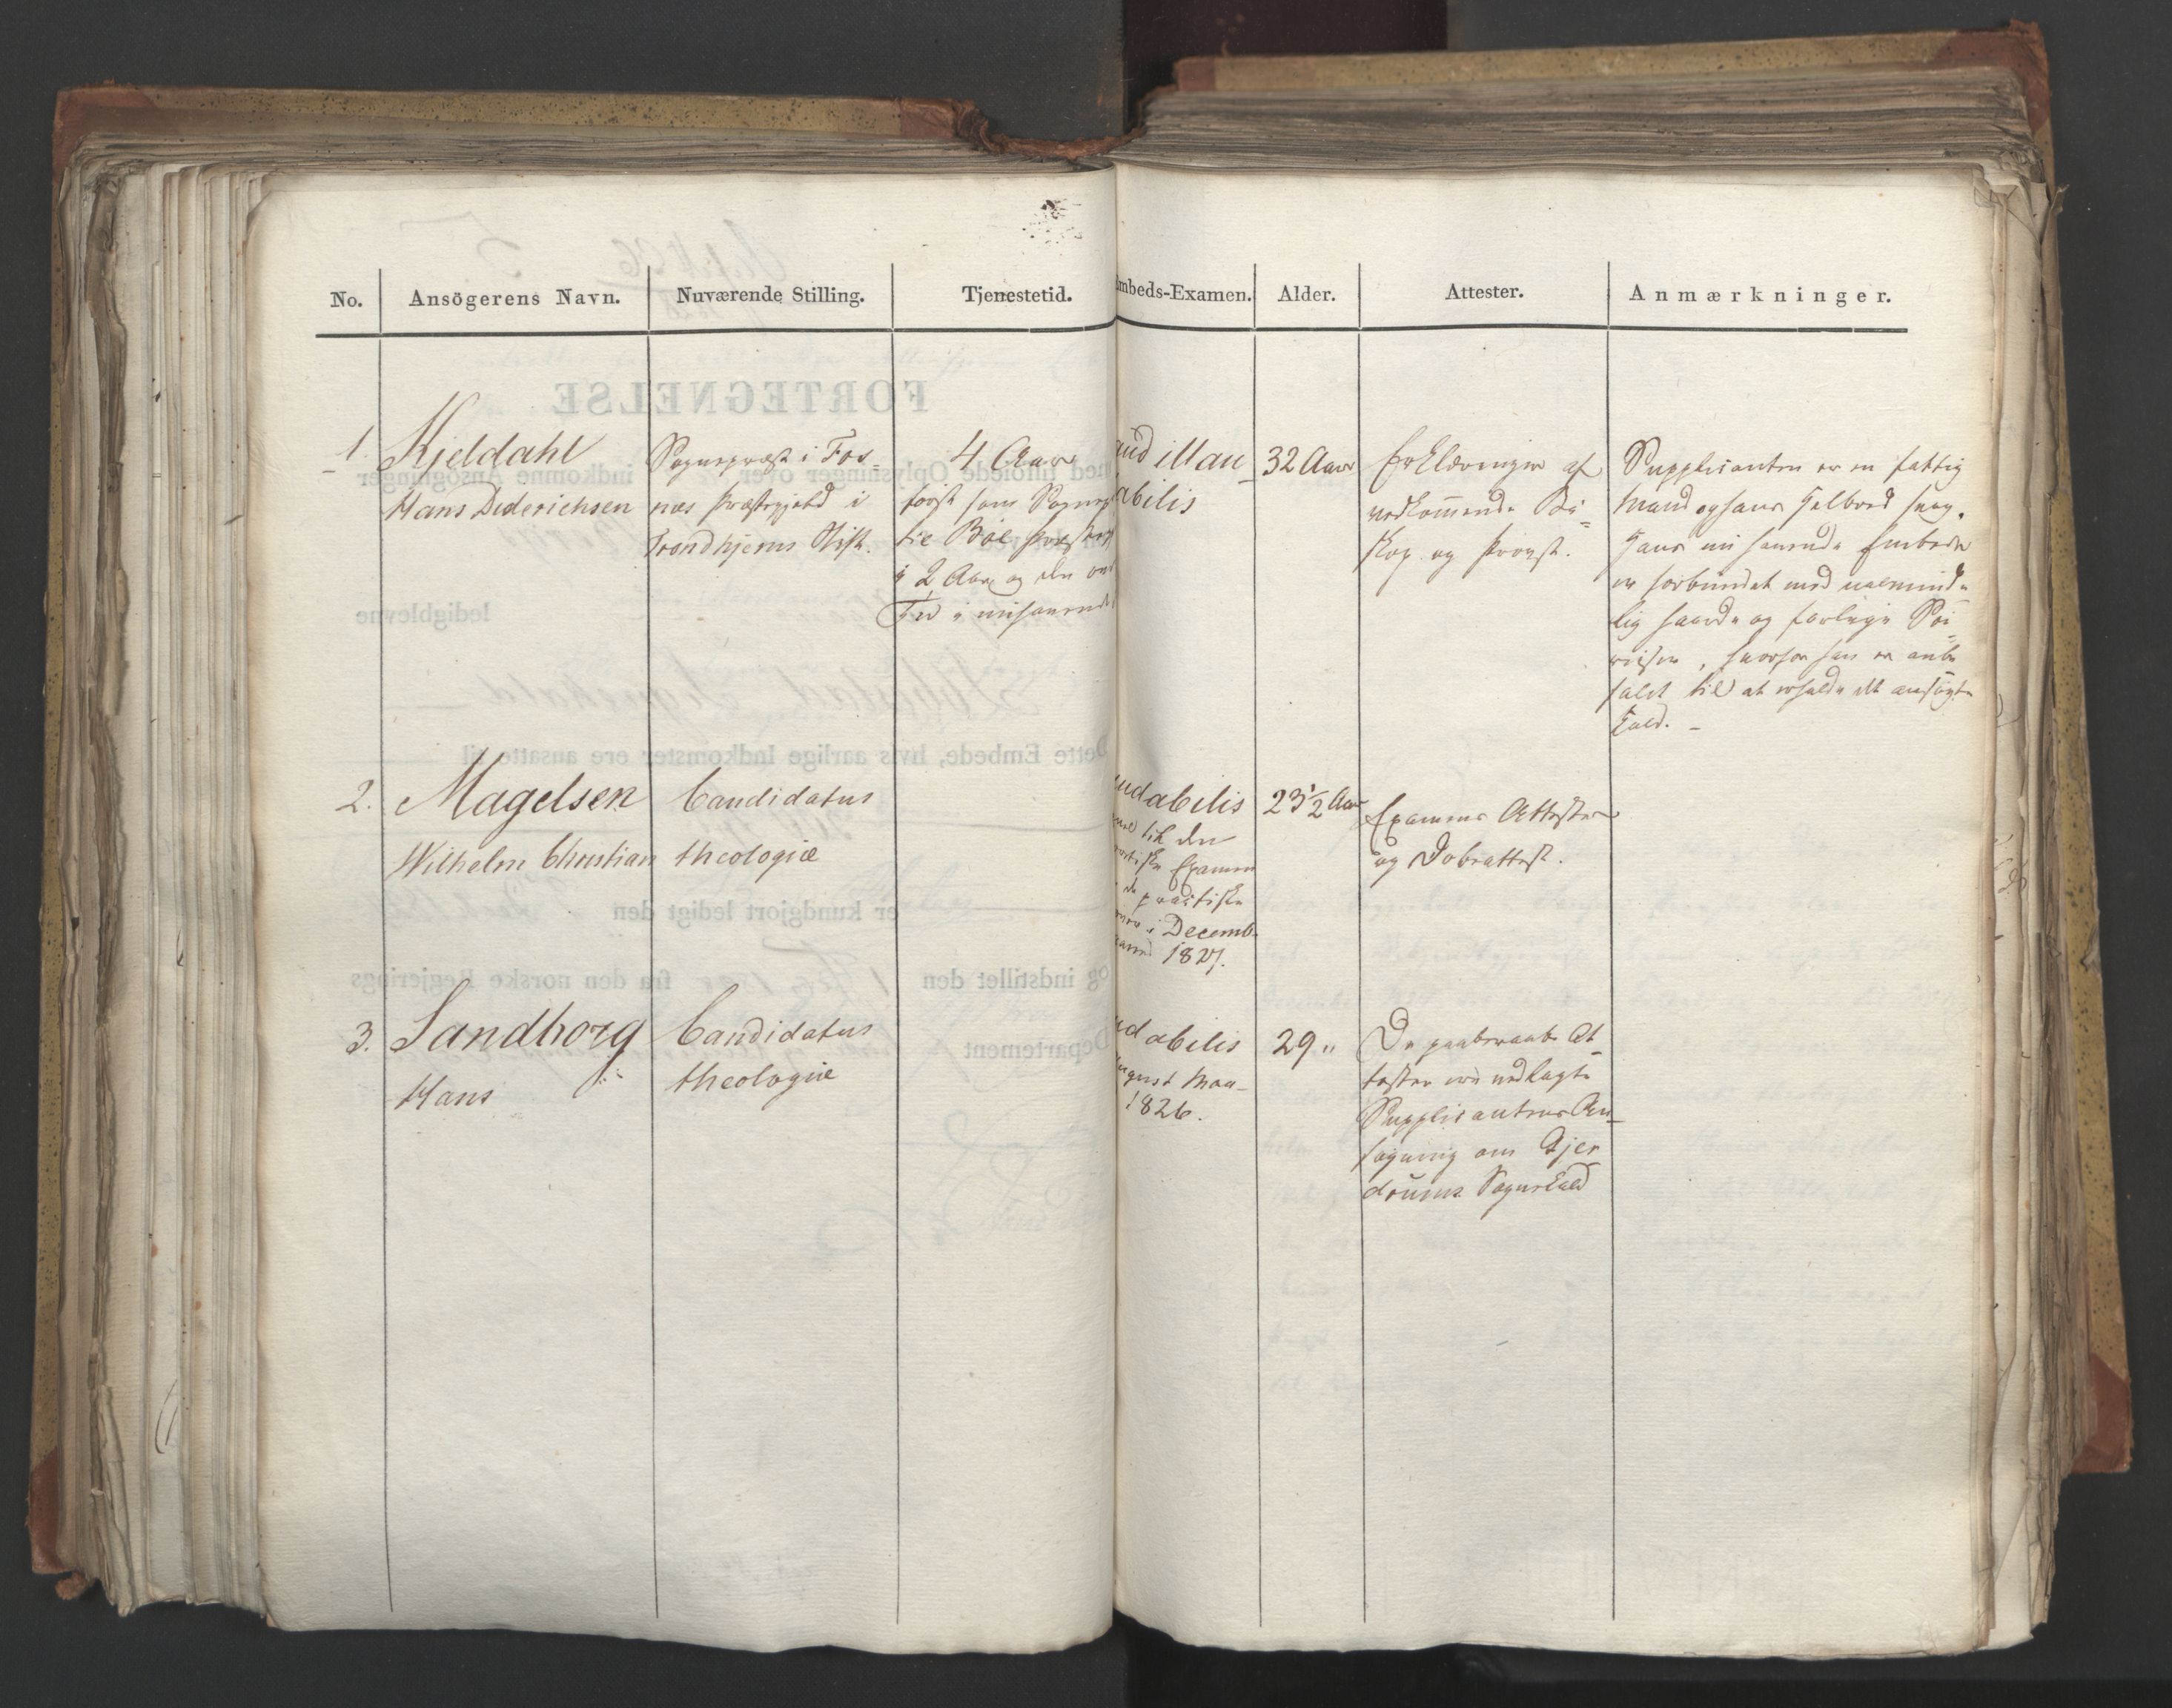 No. Ansögerens Navn. Nuværende Stilling. Tjenestetid. mbeds-Examen. Alder. Attester. Anmærkninger.
1. Kjeldahl
Hans Diderichsen
Sognepræst i Fos-
næs Præstegjeld i
Trondhjems Stift.
4 Aar
først som Sognep
til Böe Præsteg
i 2 Aar og den
Tid i nuhavende
aud illau-
abilis
32 Aar
Erklæringer af
vedkommende Bi-
skop og Provst.
Supplicanten er en fattig
Mand og hans Helbred svag.
Hans nuhavende Embede
er forbundet med ualminde-
lig haarde og farlige Söe-
reiser, hvorfor han er anbe
falet til at erholde det ansøgte
Kald. -
2. Magelsen
Wilhelm Christian
Candidatus
theologiæ
udabilis
til den
Examen
de practiske
i Decemb.
1827.
23 1/2 Aar
Examens Attester
og Dobeattest.
3. Sandborg
Hans
Candidatus
theologiæ
udabilis
ugust Maa-
1826.
29 "
De paaberaabte At-
tester ere vedlagte
Supplicantens An-
søgning om Gjer
drums Sognekald